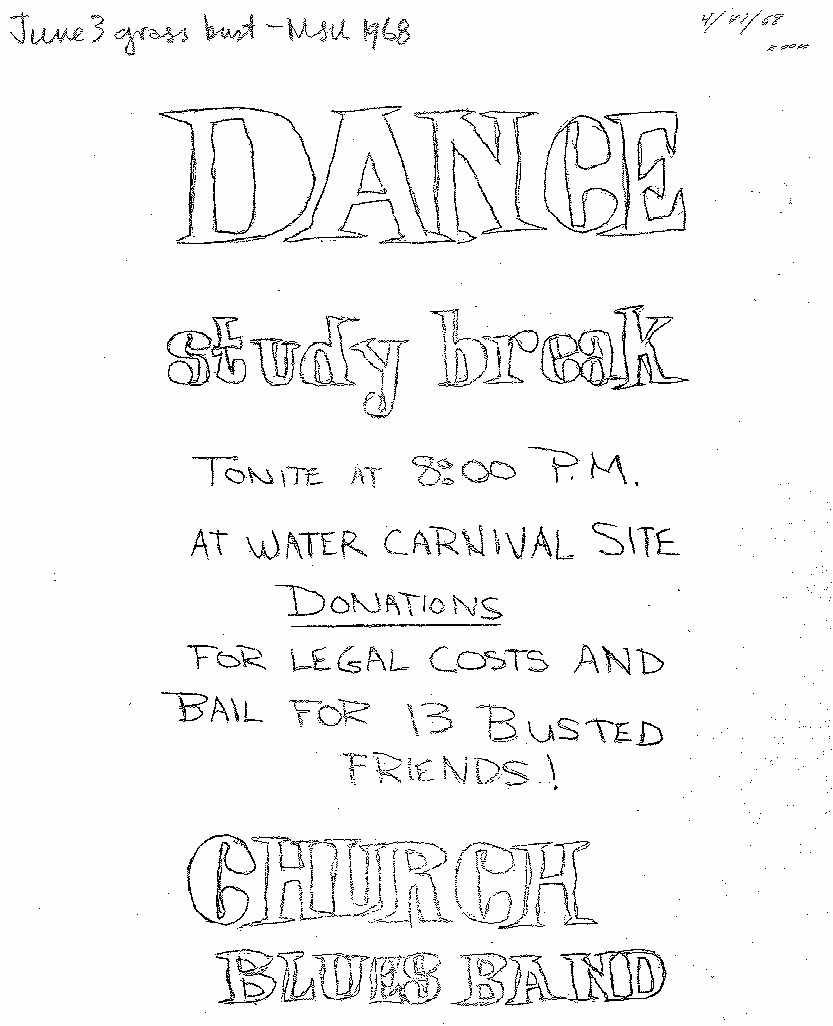 June 3 grass bust - MSU 1968
DANCE
study break
TONITE AT 8:00 P.M.
AT WATER CARNIVAL SITE
DONATIONS
FOR LEGAL COSTS AND
BAIL FOR 13 BUSTED
FRIENDS!
CHURCH
BLUES BAND